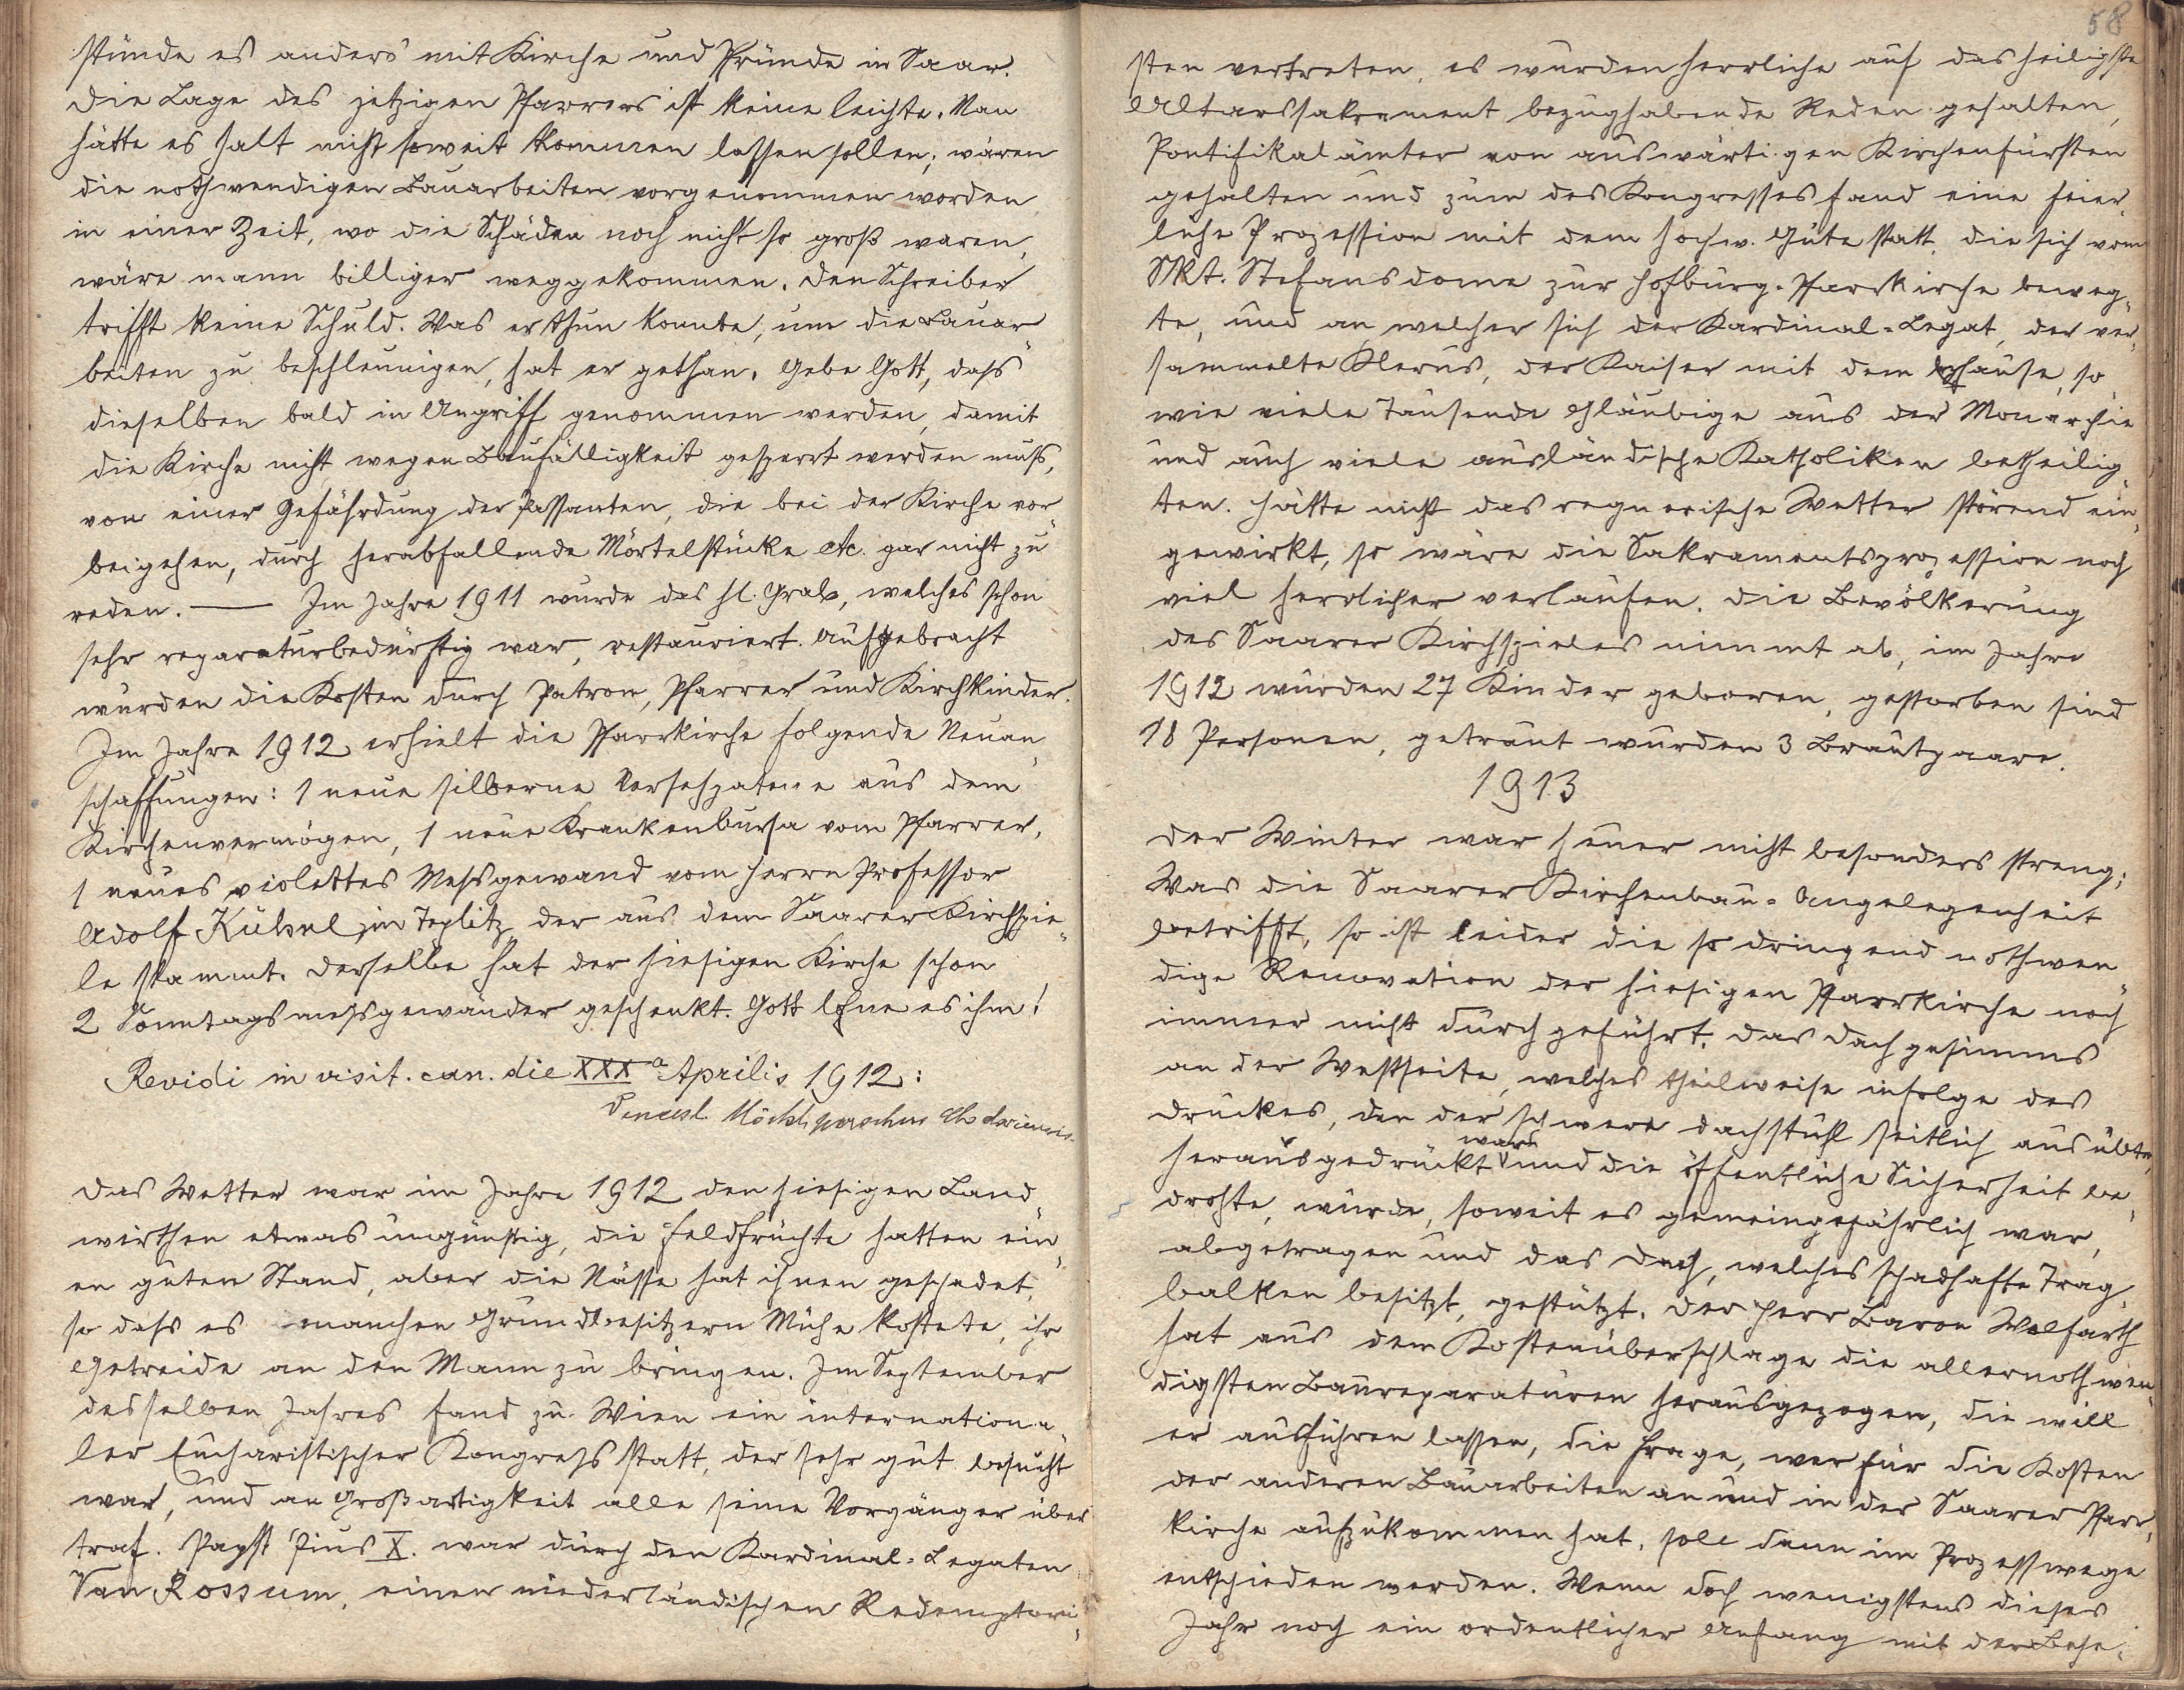 stünde es anders mit Kirche und Pfründe in Saar.
Die Lage des jetzigen Pfarrers ist keine leichte. Man
hätte es halt nicht soweit kommen lassen sollen; wären
die nothwendigen Bauarbeiten vorgenommen worden
in einer Zeit, wo die Schäden noch nicht so groß waren,
wäre mann billiger weggekommen. Den Schreiber
trifft keine Schuld. Was er thun konnte, um die Bauar-
beiten zu beschleunigen, hat er gethan. Gebe Gott, dass
dieselben bald in Angriff genommen werden, damit
die Kirche nicht wegen Baufälligkeit gesperrt werden muß,
von einer Gefährdung der Passanten, die bei der Kirche vor-
beigehen, durch herabfallende Mörtelstücke etc. gar nicht zu
reden. — Im Jahre 1911 wurde das hl. Grab, welches schon
sehr reparaturbedürftig war, restauriert. Aufgebracht
wurden die Kosten durch Patron, Pfarrer und Kirchkinder.
Im Jahre 1912 erhielt die Pfarrkirche folgende Neuan-
schaffungen: 1 neue silberne Versehpatene aus dem
Kirchenvermögen, 1 neue Krankenbursa vom Pfarrer,
1 neues violettes Messgewand vom Herrn Professor
Adolf Kühnl in Teplitz, der aus dem Saarer Kirchspie-
le stammt. Derselbe hat der hiesigen Kirche schon
2 Sonntagsmessgewänder geschenkt. Gott lohne es ihm!
Revidi in visit. can. die XXXa Aprilis 1912:
Das Wetter war im Jahre 1912 den hiesigen Land-
wirthen etwas ungünstig, die Feldfrüchte hatten ein-
en guten Stand, aber die Nässe hat ihnen geschadet,
so dass es manchen Grundbesitzern Mühe kostete, ihr
Getreide an den Mann zu bringen. Im September
desselben Jahres fand zu Wien ein internationa-
ler Eucharistischer Kongress statt, der sehr gut besucht
war, und an Großartigkeit alle seine Vorgänger über-
traf. Papst Pius X. war durch den Kardinal-Legaten
Van Rossum, einen niederländischen Redemptori-
58
sten vertreten, es wurden herrliche auf das heiligste
Altarssakrament bezughabende Reden gehalten,
Pontifikalämter von auswärtigen Kirchenfürsten
gehalten und zum des Kongresses fand eine feier-
liche Prozession mit dem hochw. Gute statt, die sich vom
Skt. Stefansdome zur Hofburg-Pfarrkirche beweg-
te, und an welcher sich der Kardinal-Legat, der ver-
sammelte Klerus, der Kaiser mit dem Hofhause, so
wie viele Tausende Gläubige aus der Monarchie
und auch viele ausländische Katholiken betheilig-
ten. Hätte nicht das regnerische Wetter störend ein-
gewirkt, so wäre die Sakramentsprozession noch
viel herrlicher verlaufen. Die Bevölkerung
des Saarer Kirchspieles nimmt ab, im Jahre
1912 wurden 27 Kinder geboren, gestorben sind
18 Personen, getraut wurden 3 Brautpaare.
1913
Der Winter war heuer nicht besonders streng;
Was die Saarer Kirchenbau-Angelegenheit
betrifft, so ist leider die so dringend nothwen-
dige Renovation der hiesigen Pfarrkirche noch
immer nicht durchgeführt. Das Dachgesimms
an der Westseite, welches theilweise infolge des
Druckes, den der schwere Dachstuhl seitlich ausübte,
herausgedrückt ward und die öffentliche Sicherheit be-
drohte, wurde, soweit es gemeingefährlich war,
abgetragen und das Dach, welches schadhafte Trag-
balken besitzt, gestützt. Der Herr Baron Wolfarth
hat aus dem Kostenüberschlage die allernothwen-
digsten Baureparaturen herausgezogen, die will
er ausführen lassen, die Frage, wer für die Kosten
der anderen Bauarbeiten an und in der Saarer Pfarr-
kirche aufzukommen hat, soll dann im Prozesswege
entschieden werden. Wenn doch wenigstens dieses
Jahr noch ein ordentlicher Anfang mit der Behe-